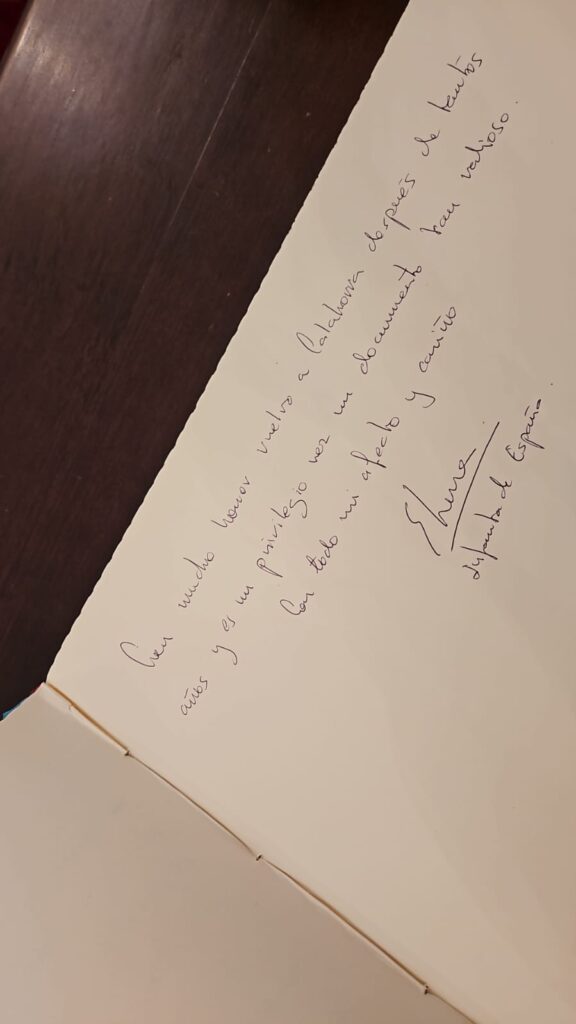 Con mucho honor vuelvo a Calahorra después de tantos
años y es un privilegio ver un documento tan valioso.
Con todo mi afecto y cariño
Elena
Infanta de España.